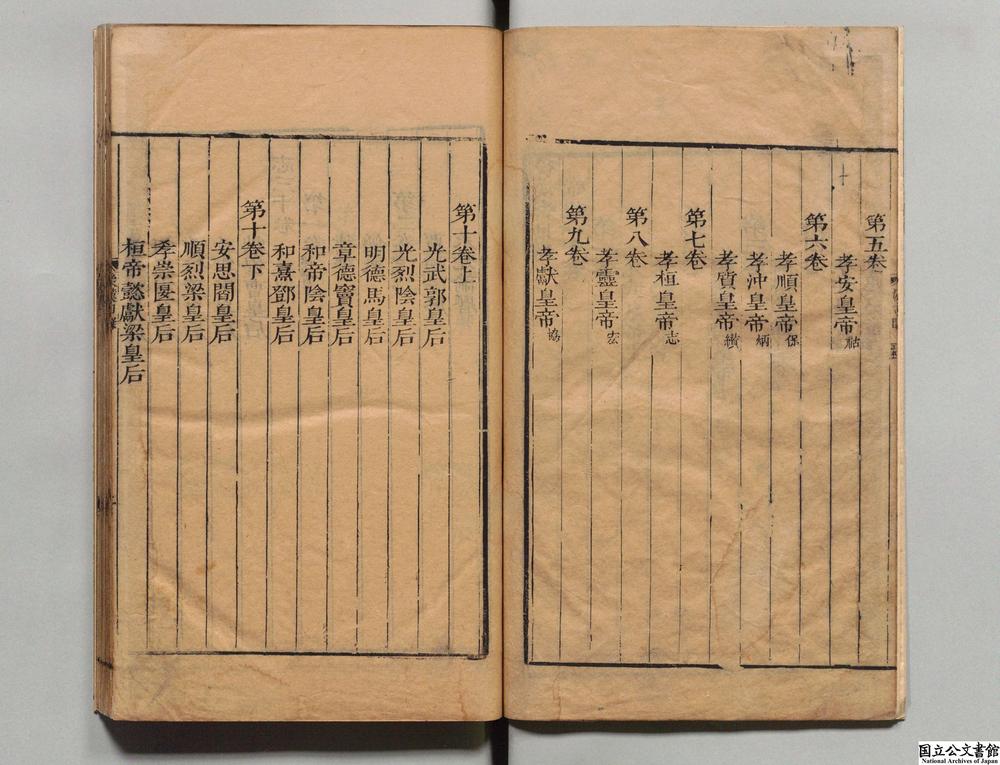 第五卷
孝安皇帝祜
第六卷
孝順皇帝保
孝沖皇帝炳
孝質皇帝纘
第七卷
孝桓皇帝志
第八卷
孝靈皇帝宏
第九卷
孝獻皇帝協
第十卷上
光武郭皇后
光烈陰皇后
明德馬皇后
章德竇皇后
和帝陰皇后
和熹鄧皇后
第十卷下
安思閻皇后
順烈梁皇后
孝崇匽皇后
桓帝懿獻梁皇后
国立公文書館
National Archives of Japan